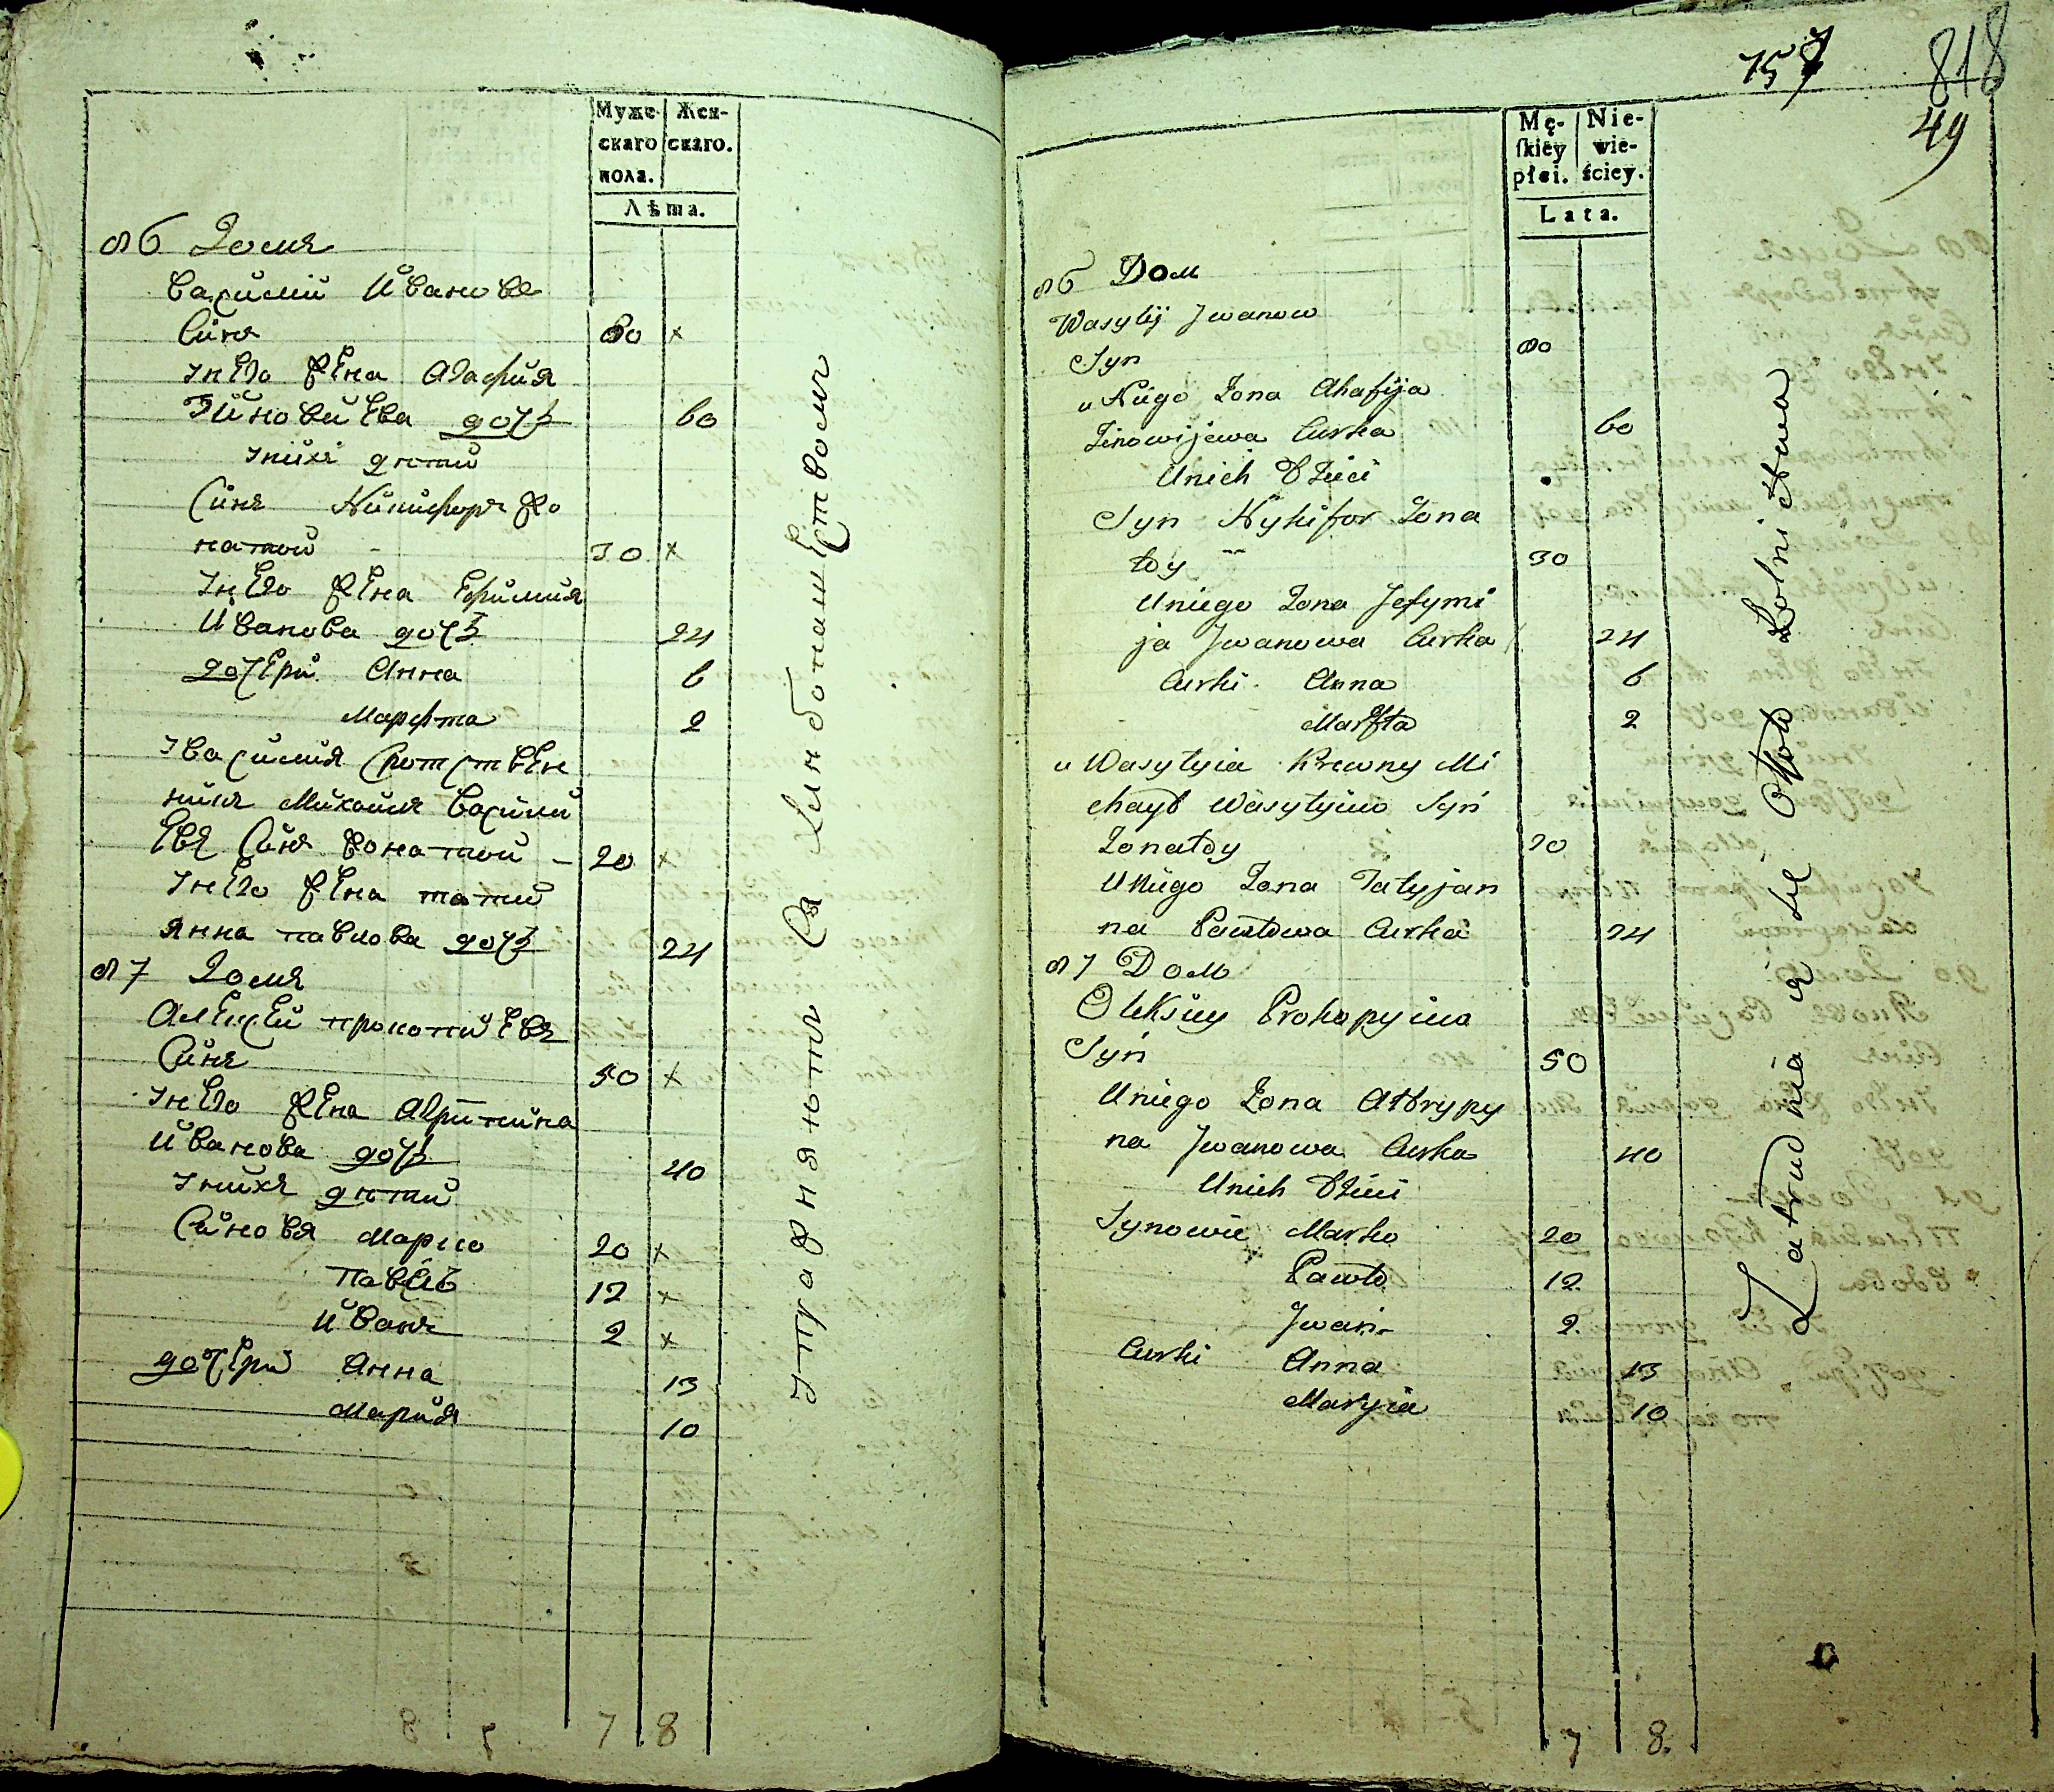 Муже- Жен-
скаго скаго.
пола.
Лѣта.
86 Домъ
Василій Ивановъ
Синъ 80 x
Унего жена Агафия
Зиновиева дочь 60
Унихъ дѣти
Синъ Никифоръ жо
натой - 30 x
Унего жена Ефимия
Иванова дочь 24
дочери Анна 6
Марфта 2
Увасиля Сротствен
никъ Михайлъ Васили
евъ Синъ жонатой - 20 x
Унего жена тати
янна павлова дочь 24
87 Домъ
Алексей прокопиевъ
Синъ 50 x
Унего жена Агрипина
Иванова дочь 40
Унихъ дѣти
Синовя Марко 20 x
павелъ 12 x
Иванъ 2 x
дочери Анна 13
Мария 10
7 8
упражняются Ся хлибопашеством
757
818
49
Mę- Nie-
ſkiey wie-
płci. ściey.
Lata.
86 Dom
Wasylij Jwanow
Syn 80
u Niego Żona Ahafija
Zinowijewa Curka 60
Unich Dzieci
Syn Nykifor Żona
ty 30
Uniego Żona Jefymi
ja Jwanowa Curka 24
Curki Anna 6
Marfta 2
u Wasylyia Krewny Mi
chaył Wasylyiw Syn
Żonaty 20
Uniego Żona Tatyjan
na Pawłowa Curka 24
87 Dom
Oleksiey Prokopyiw
Syn 50
Uniego Żona Ahrypy
na Jwanowa Curka 40
Unich Dzieci
Synowie Marko 20
Pawło 12
Jwan 2
Curki Anna 13
Maryia 10
7 8.
Zatrudniaią się około Rolnictwa